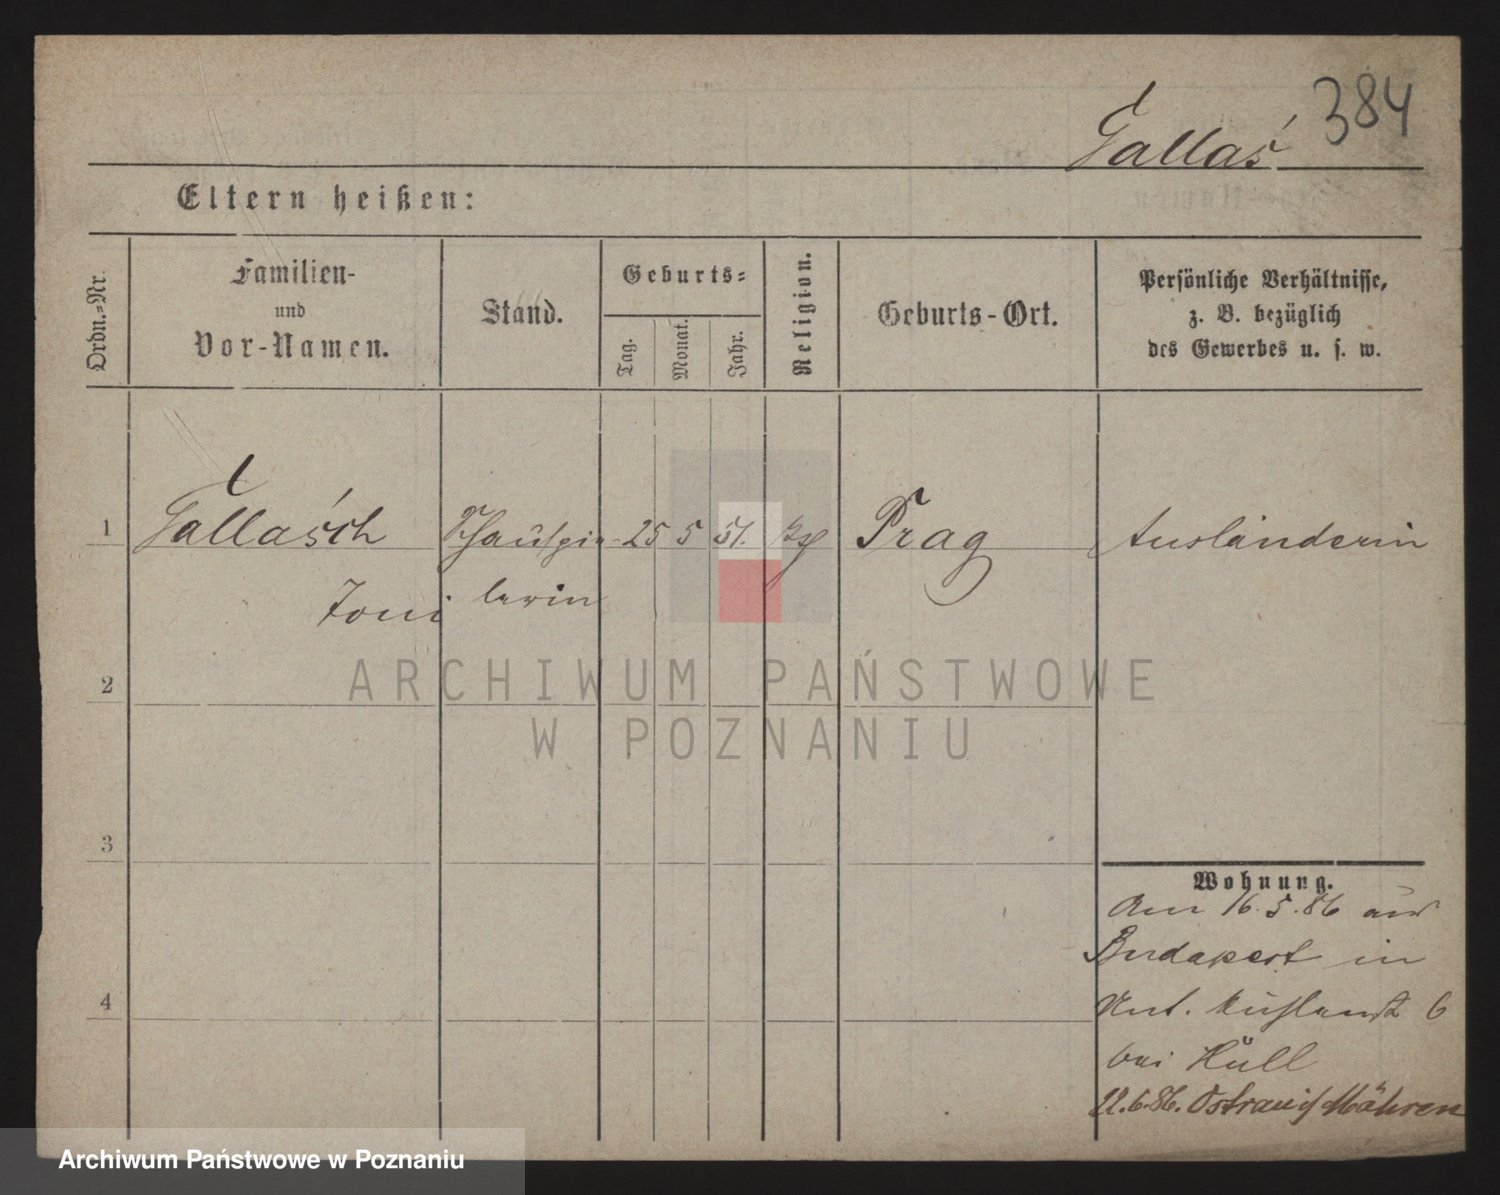 384
Gallaś
Eltern heißen:
Ordn.-Nr.
Familien-
und
Vor-Namen.
Stand.
Geburts-
Tag.
Monat.
Jahr.
Religion.
Geburts-Ort.
Persönliche Verhältnisse,
z. B. bezüglich
des Gewerbes u. s. w.
1
Gallaśch Schauspie- 25 5 51. Prag Ausländerin
Toni lerin
ARCHIWUM PAŃSTWOWE
W POZNANIU
2
3
4
Wohnung.
Am 16.5.86 aus
Budapest in
Unt. 6
bei Hüll
22.6.86. Ostrau i/ Mähren
Archiwum Państwowe w Poznaniu